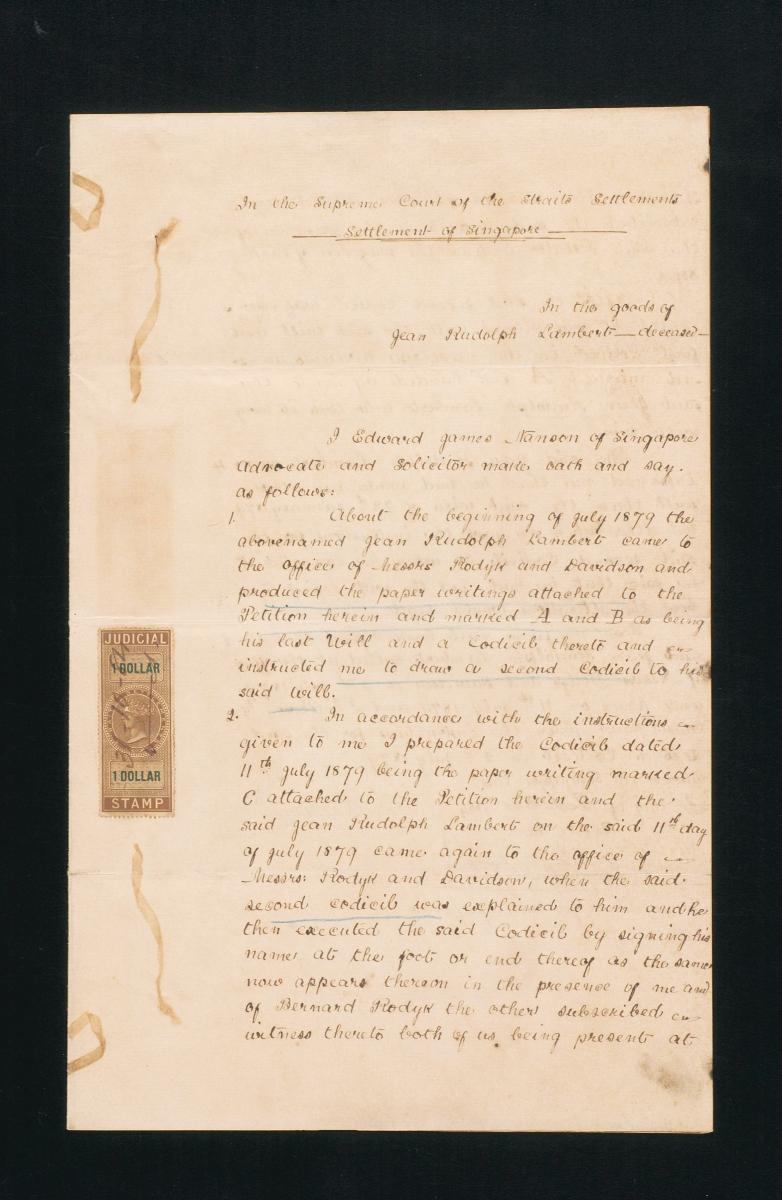 In the Supreme Court of the Straits Settlements
Settlement of Singapore
In the goods of
Jean Rudolph Lambert — deceased —
I Edward James Nanson of Singapore
Advocate and Solicitor make oath and say.
as follows:
1. About the beginning of July 1879 the
abovenamed Jean Rudolph Lambert came to
the office of Messrs Rodyk and Davidson and
produced the paper writings attached to the
Petition herein and marked A and B as being
his last Will and a Codicil thereto and
instructed me to draw a second Codicil to his
said will.
2. In accordance with the instructions
given to me I prepared the Codicil dated
11th July 1879 being the paper writing marked
C attached to the Petition herein and the
said Jean Rudolph Lambert on the said 11th day
of July 1879 came again to the office of
Messrs: Rodyk and Davidson, when the said
second codicil was explained to him and he
then executed the said Codicil by signing his
name at the foot or end thereof as the same
now appears thereon in the presence of me and
of Bernard Rodyk the other subscribed
witness thereto both of us being present at
JUDICIAL
1 DOLLAR
1 DOLLAR
STAMP